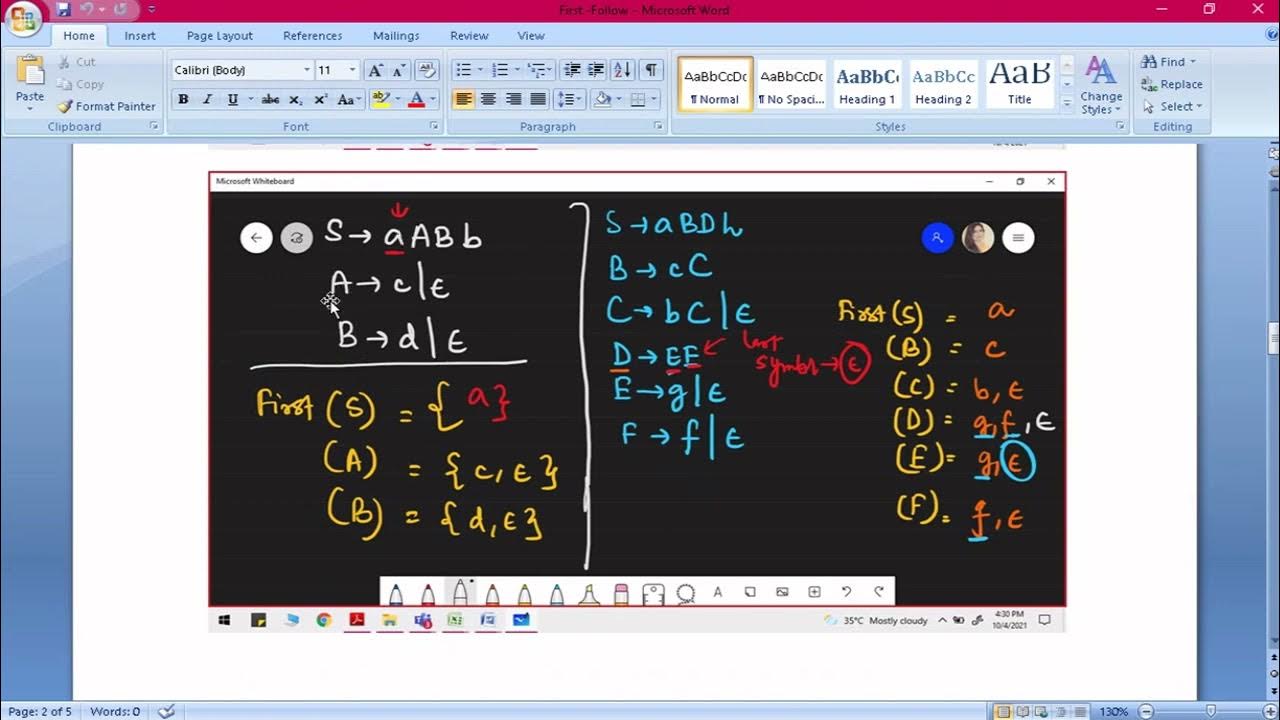 First -Follow - Microsoft Word
Home Insert Page Layout References Mailings Review View
Paste
Cut
Copy
Format Painter
Clipboard
Calibri (Body) 11
Font
Paragraph
AaBbCcDc AaBbCcDc AaBbCc AaBbCc AaB
¶ Normal ¶ No Spaci... Heading 1 Heading 2 Title
Change Styles
Styles
Find
Replace
Select
Editing
Microsoft Whiteboard
S → aABb
A → c | ε
B → d | ε
First (S) = { a }
(A) = { c, ε }
(B) = { d, ε }
S → aBDh
B → cC
C → bC | ε
D → EF ← last symbol → ε
E → g | ε
F → f | ε
First (S) = a
(B) = c
(C) = b, ε
(D) = g, f, ε
(E) = g, ε
(F) = f, ε
35°C Mostly cloudy
4:30 PM
10/4/2021
Page: 2 of 5 Words: 0 130%